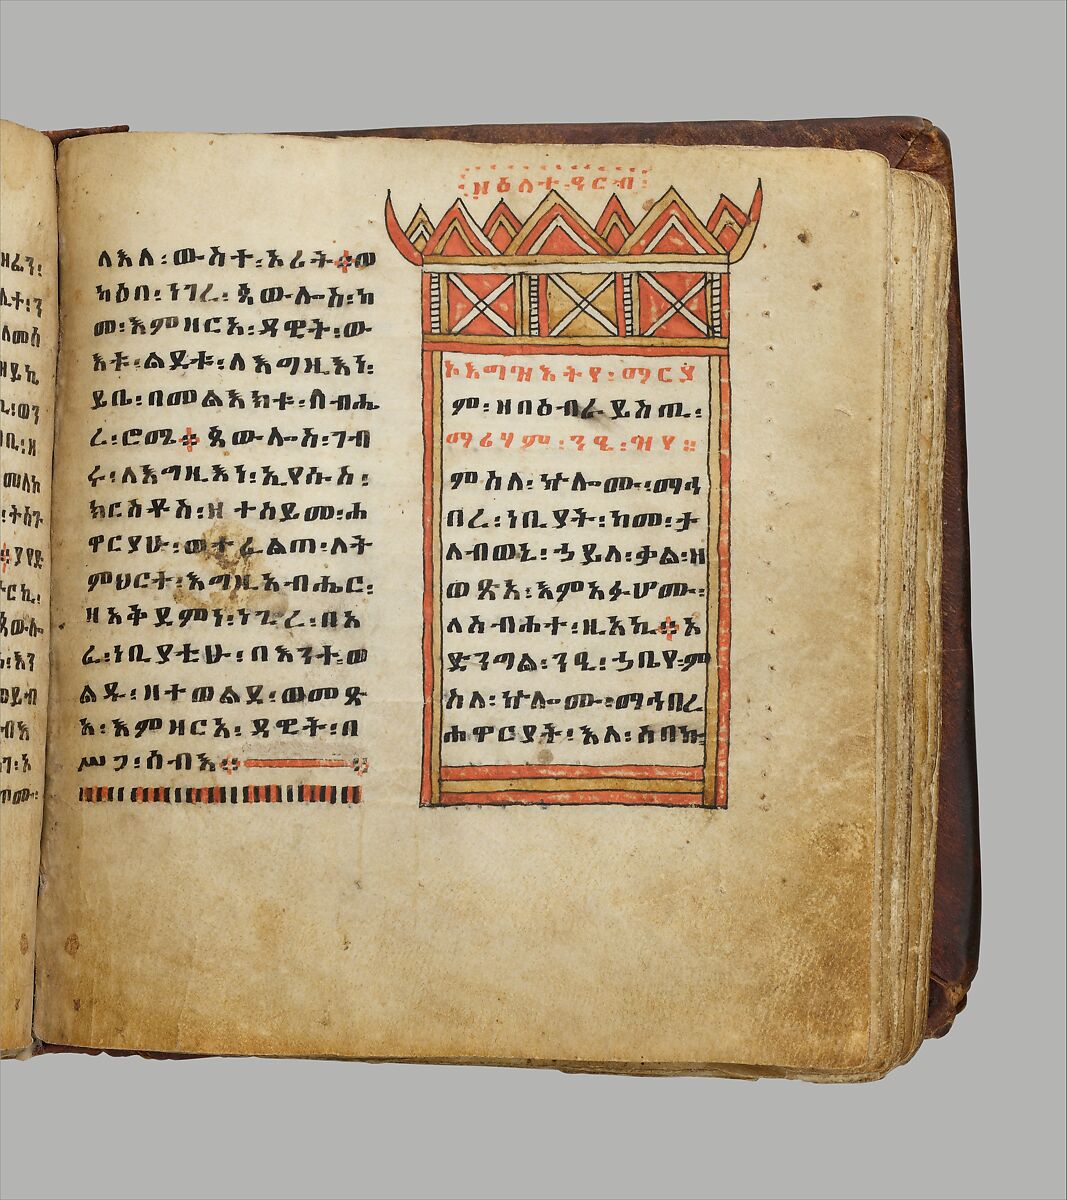 ለእለ፡ውስተ፡አሪት።ወ
ካዕበ፡ነገረ፡ጳውሎስ፡ከ
መ፡እምዘርአ፡ዳዊት፡ው
እቱ፡ልደቱ፡ለእግዚእነ፡
ይቤ፡በመልእክቱ፡ለብሔ
ረ፡ሮሜ።ጳውሎስ፡ገብ
ሩ፡ለእግዚእነ፡ኢየሱስ፡
ክርስቶስ፡ዘተሰይመ፡ሐ
ዋርያሁ፡ወተፈልጠ፡ለት
ምህርተ፡እግዚአብሔር፡
ዘአቅደምነ፡ነጊረ፡በአ
ፈ፡ነቢያቲሁ፡በእንተ፡ወ
ልዱ፡ዘተወልደ፡ወመጽ
አ፡እምዘርአ፡ዳዊት፡በ
ሥጋ፡ሰብእ።
ዘዕለተ፡ዓርብ፡
ኦእግዝእትየ፡ማርያ
ም፡ዘበዕብራይስጢ፡
ማሪሃም፡ንዒ፡ዝየ።
ምስለ፡ኵሎሙ፡ማኅ
በረ፡ነቢያት፡ከመ፡ታ
ለብወኒ፡ኃይለ፡ቃል፡ዘ
ወጽአ፡እምአፉሆሙ፡
ለስብሐተ፡ዚአኪ።እ
ድንግል፡ንዒ፡ኃቤየ፡ም
ስለ፡ኵሎሙ፡ማኅበረ
ሐዋርያት፡እለ፡ሰበኩ፡